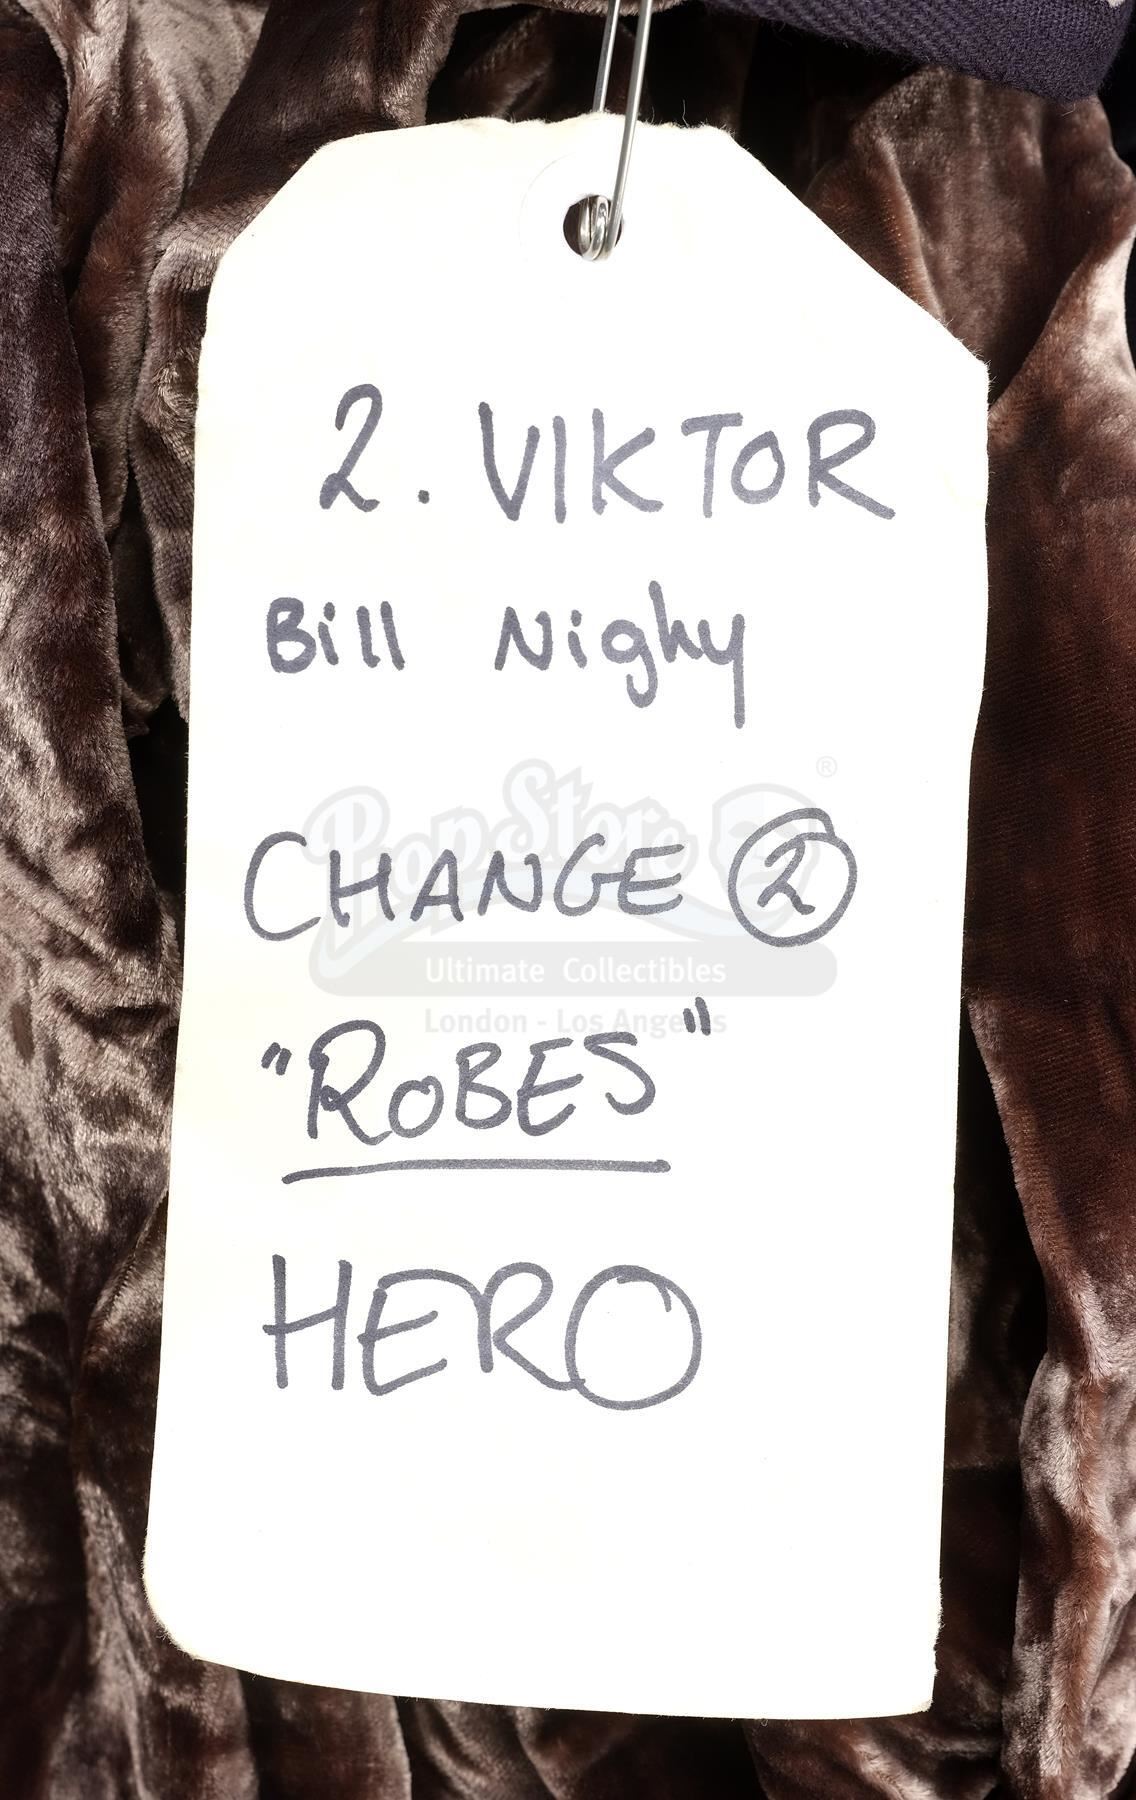 2. VIKTOR
Bill Nighy
CHANGE ②
"ROBES"
HERO
Prop Store ®
Ultimate Collectibles
London - Los Angeles